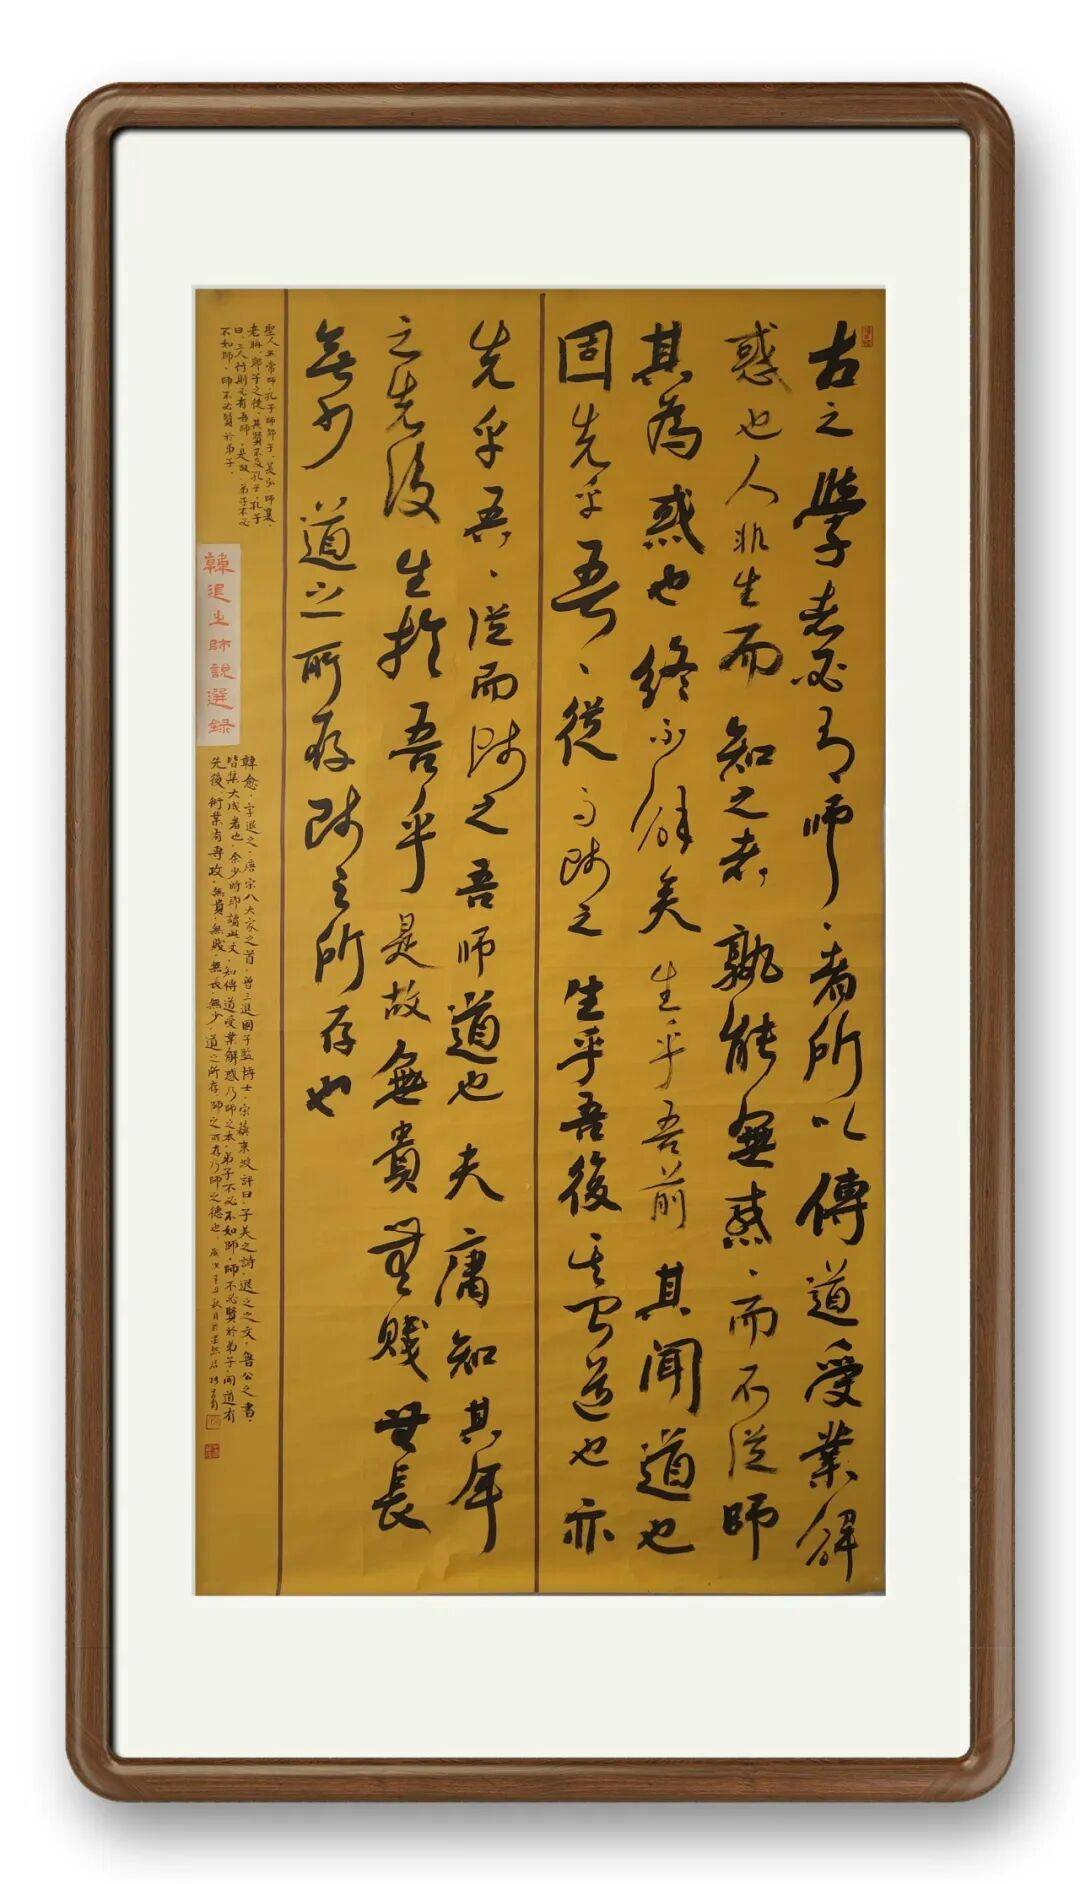 古之學者必有師、者所以傳道受業解
惑也人非生而知之者、孰能無惑、而不從師
其為惑也終不解矣生乎吾前其聞道也
固先乎吾、從而師之生乎吾後其聞道也亦
先乎吾、從而師之吾師道也夫庸知其年
之先後生於吾乎是故無貴無賤無長
無少道之所存師之所存也
聖人无常師、孔子師郯子、萇弘、師襄、
老聃、郯子之徒、其賢不及孔子、孔子
曰、三人行則必有吾師、是故、弟子不必
不如師、師不必賢於弟子、
韓退之師說選録
韓愈、字退之、唐宋八大家之首、曾三進國子監博士、宋蘇東坡評曰、子美之詩、退之之文、魯公之書、
皆集大成者也、余少時即讀此文、知傳道受業解惑乃師之本、弟子不必不如師、師不必賢於弟子、聞道有
先後、術業有專攻、無貴、無賤、無長、無少、道之所存、師之所存乃師之德也、歲次辛丑秋月於